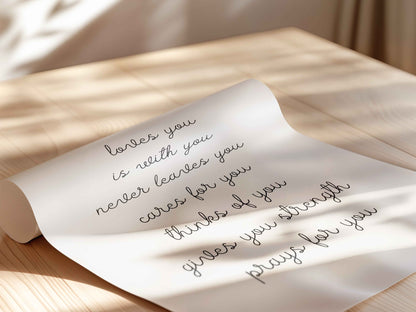 loves you
is with you
never leaves you
cares for you
thinks of you
gives you strength
prays for you